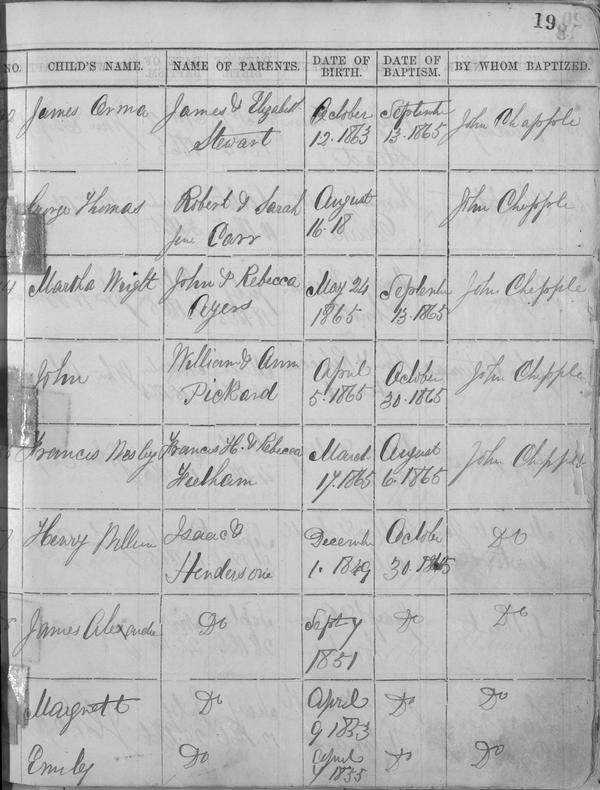 19
NO. CHILD'S NAME. NAME OF PARENTS. DATE OF BIRTH. DATE OF BAPTISM. BY WHOM BAPTIZED.
James Orma James & Elizabeth October Septembe John Chapple
Stewart 12.1863 13.1865
George Thomas Robert & Sarah August John Chepple
Jene Carr 16.18
Martha Wright John & Rebecca May 24 Septembe John Chepple
Ayers 1865 13.1865
John William & Ann April October John Chepple
Pickard 5.1865 30.1865
Francis Wesley Francis H. & Rebecca March August John Chepple
Feetham 17.1865 6.1865
Henry William Isaac & December Octobe Do
Henderson 1.1849 30.1865
James Alexander Do Sept 7 Do Do
1851
Margrett Do April Do Do
9 1853
Emily Do April Do Do
7 1855